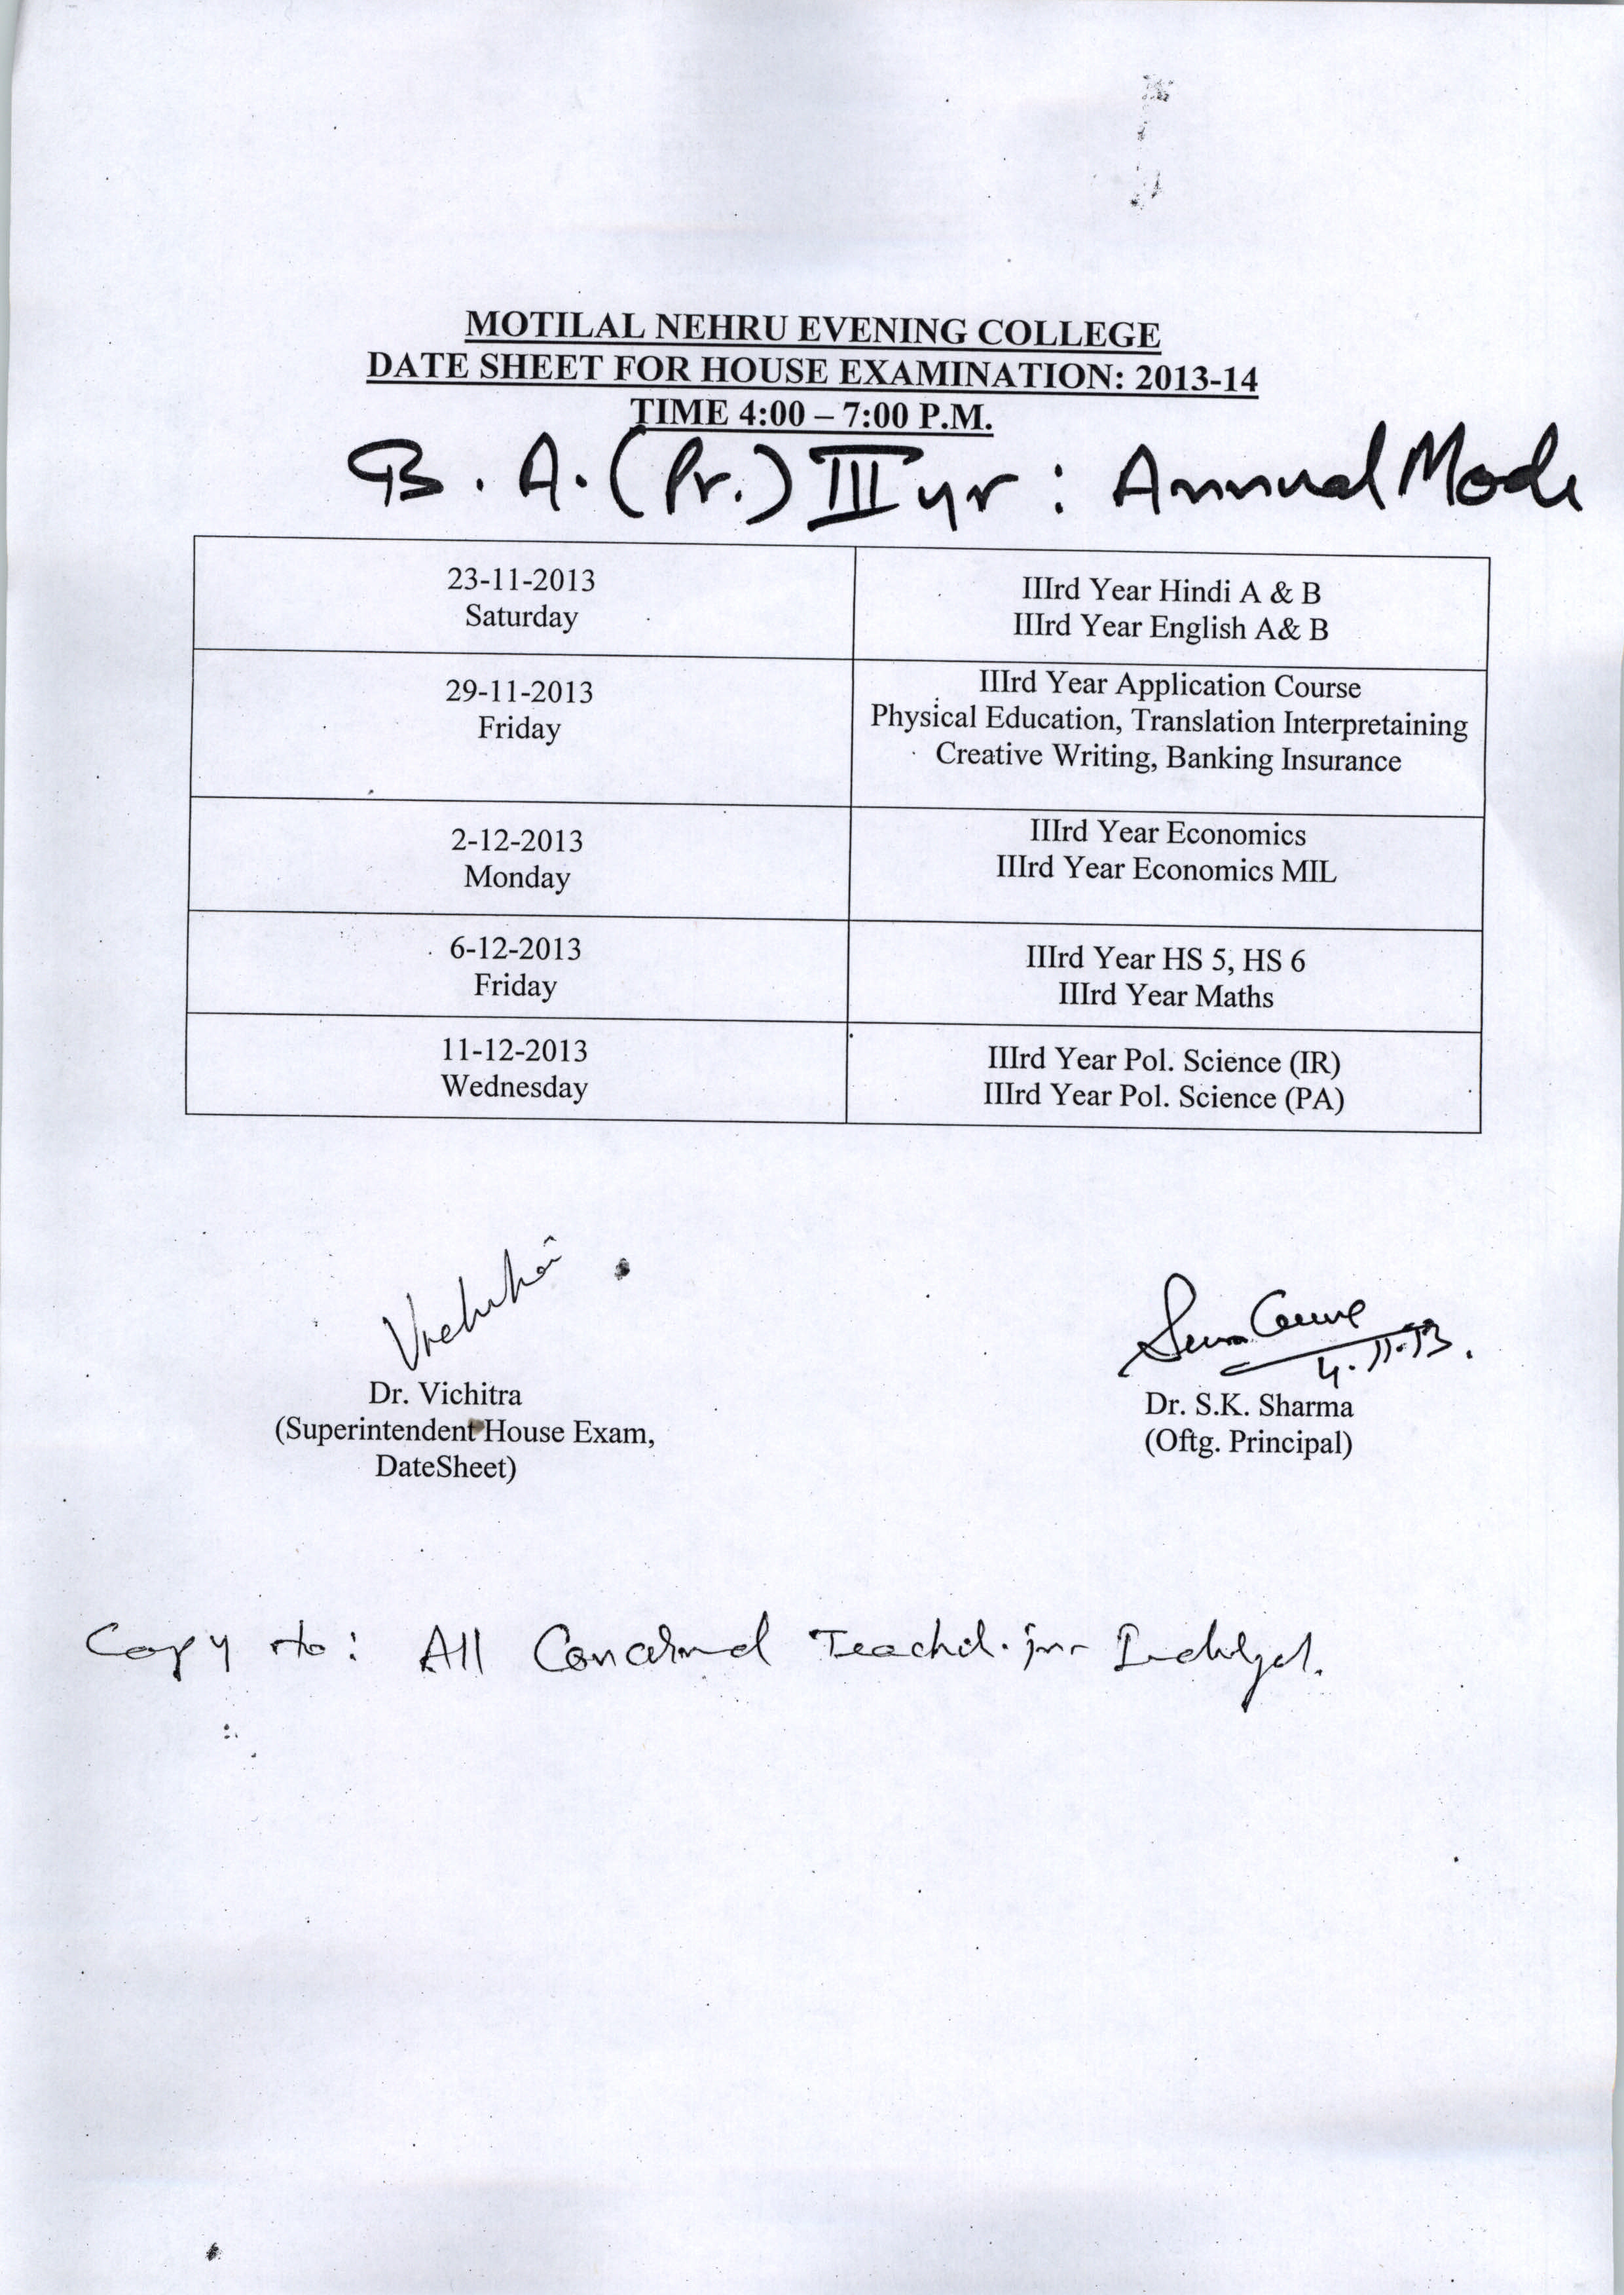 MOTILAL NEHRU EVENING COLLEGE
DATE SHEET FOR HOUSE EXAMINATION: 2013-14
TIME 4:00 – 7:00 P.M.
B. A. (Pr.) III yr : Annual Mode
23-11-2013
Saturday
IIIrd Year Hindi A & B
IIIrd Year English A& B
29-11-2013
Friday
IIIrd Year Application Course
Physical Education, Translation Interpretaining
Creative Writing, Banking Insurance
2-12-2013
Monday
IIIrd Year Economics
IIIrd Year Economics MIL
6-12-2013
Friday
IIIrd Year HS 5, HS 6
IIIrd Year Maths
11-12-2013
Wednesday
IIIrd Year Pol. Science (IR)
IIIrd Year Pol. Science (PA)
4.11.13.
Dr. Vichitra
(Superintendent House Exam,
DateSheet)
Dr. S.K. Sharma
(Oftg. Principal)
Copy to: All Concerned